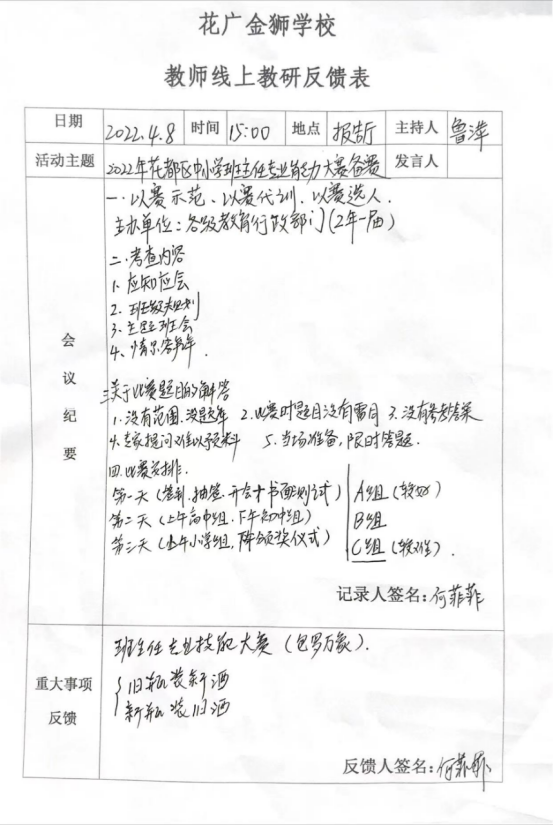 花广金狮学校
教师线上教研反馈表
日期 2022.4.8 时间 15:00 地点 报告厅 主持人 鲁萍
活动主题 2022年花都区中小学班主任专业能力大赛备赛 发言人
会议纪要
一.以赛示范、以赛代训、以赛选人.
主办单位:各级教育行政部门(2年一届)
二.考查内容
1.应知应会
2.班级规划
3.主题班会
4.情景答辩.
三.关于比赛题目的解答
1.没有范围,没题库 2.比赛时题目没有雷同 3.没有参考答案
4.专家提问难以预料 5.当场准备,限时答题.
四.比赛安排.
第一天(签到.抽签.开会+书面测试) A组(较好)
第二天(上午高中组,下午初中组) B组
第三天(上午小学组,下午颁奖仪式) C组(较难).
记录人签名:何菲菲
重大事项反馈
班主任专业技能大赛(包罗万象).
旧瓶装新酒
新瓶装旧酒
反馈人签名:何菲菲